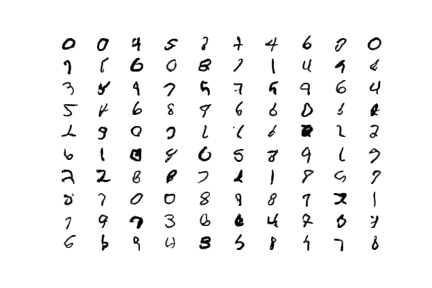 0 0 4 5 8 7 4 6 0 0
9 1 6 0 8 7 1 4 9 6
3 8 9 7 5 7 5 9 6 4
5 4 6 8 9 6 6 0 6
2 9 0 7 1 6 2 2
6 1 0 8 0 5 8 9 1 9
2 2 8 8 7 1 1 8 9 7
0 7 0 0 8 9 8 9 2 1
7 9 7 3 6 6 4 7 0 7
6 6 9 4 3 5 8 9 7 8